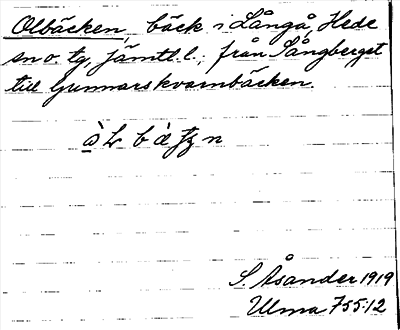 Olbäcken, bäck i Långå, Hede
sn o. tg, Jämtl. l., från Sångberget
till Gunnarskvarnbäcken.
S. Åsander 1919
Ulma 755:12